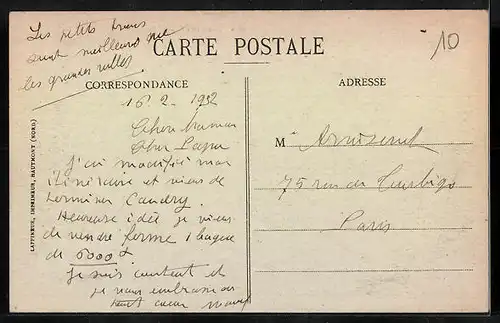 Les petits trous
sont meilleurs que
les grandes villes
10
CARTE POSTALE
CORRESPONDANCE
ADRESSE
16. 2. 1932
Chère Maman
Cher Papa
J'ai modifié mon
itinéraire et viens de
terminer Caudry.
Heureuse idée je viens
de vendre ferme 1 bague
de 6000 f
je suis content et
je vous embrasse
tout cœur
M
75 rue de Turbigo
Paris
LAFFINEUR, IMPRIMEUR, HAUTMONT (NORD)